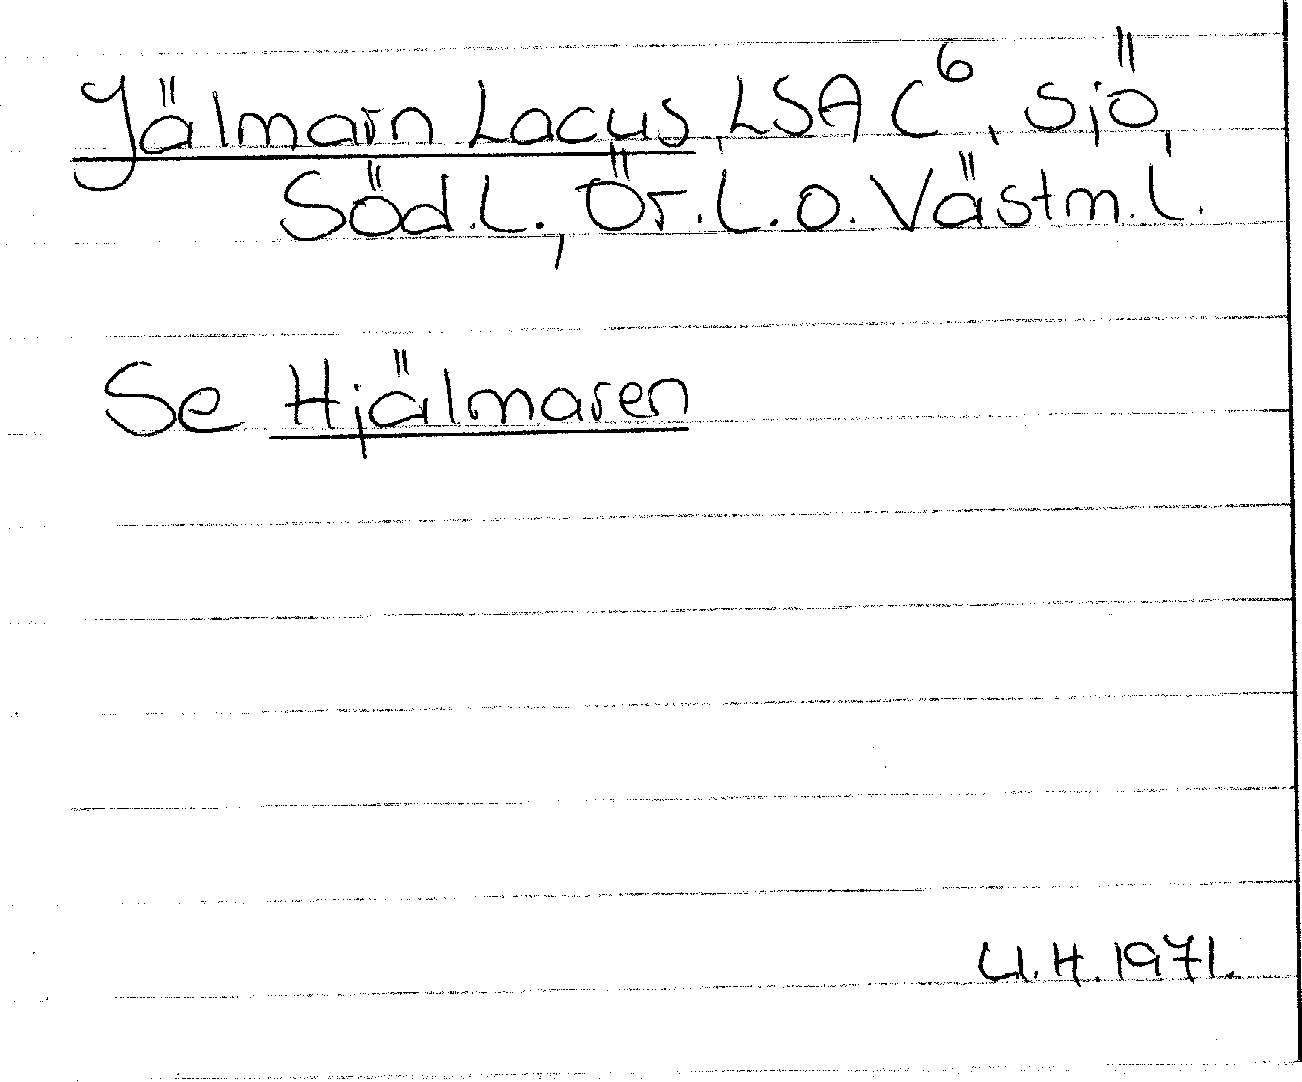 Jälmarn Lacus, LSA C⁶, sjö,
Söd.L., Ör.L.o. Västm.L.
Se Hjälmaren
U.H. 1971.